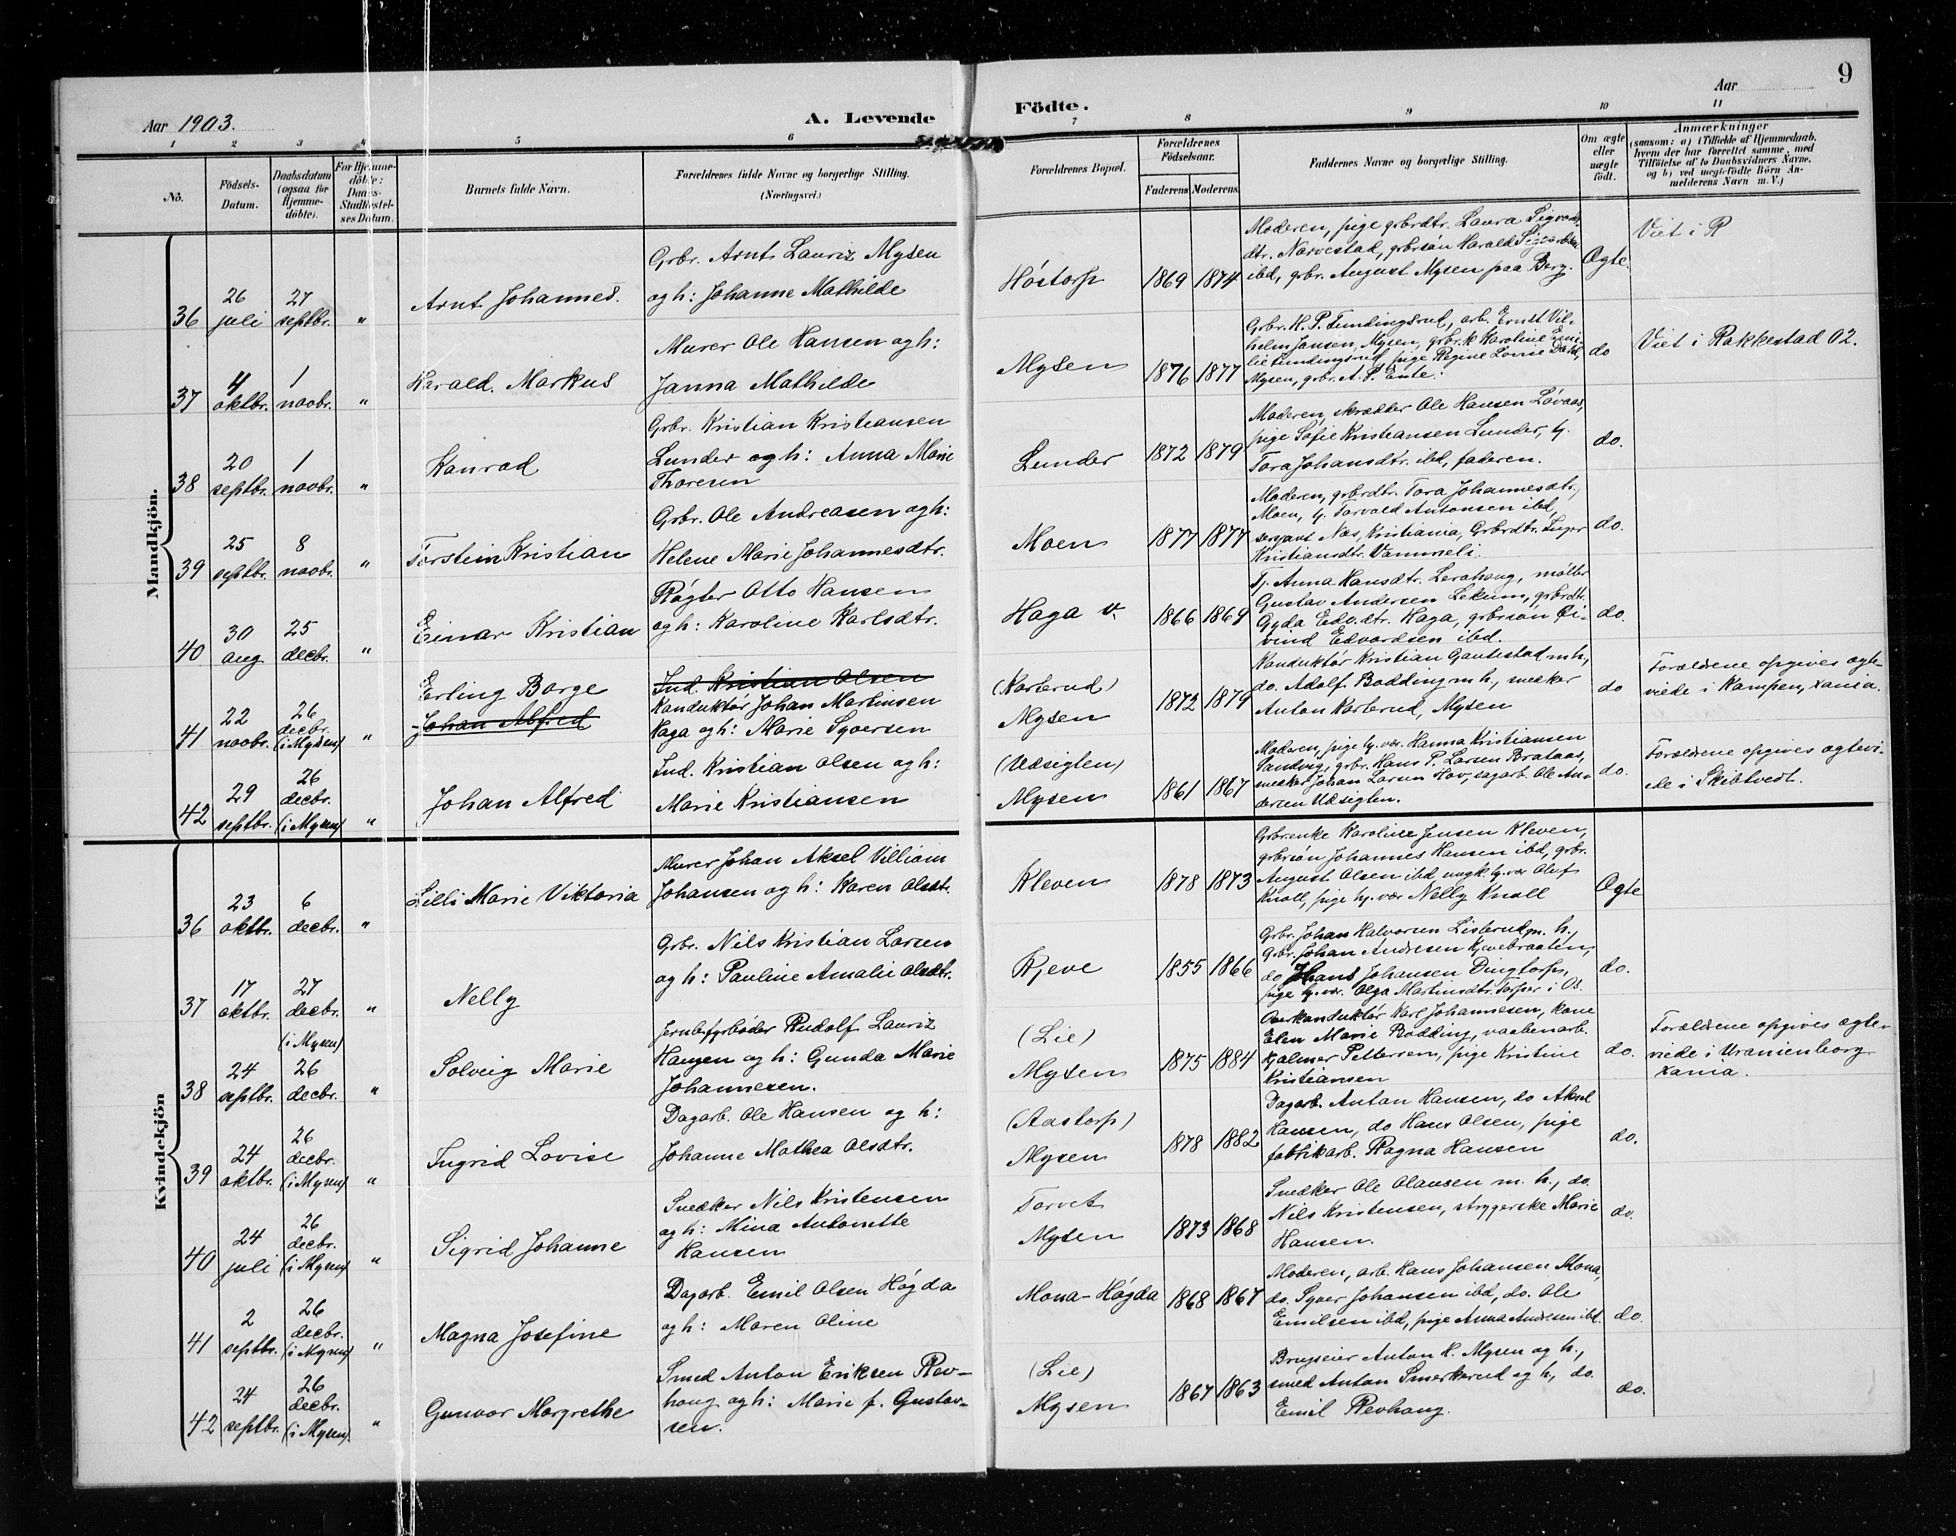 9
Aar 1903.
A. Levende
Födte.
Aar
1 2 3 4 5 6 7 8 9 10 11
No.
Födsels-
Datum.
Daabsdatum
(ogsaa for
Hjemme-
döbte).
For Hjemme-
döbte:
Daabs-
Stadfæstel-
ses Datum.
Barnets fulde Navn.
Forældrenes fulde Navne og borgerlige Stilling.
(Næringsvei.)
Forældrenes Bopæl.
Forældrenes
Födselsaar.
Faderens.
Moderens.
Faddernes Navne og borgerlige Stilling.
Om ægte
eller
uægte
födt.
Anmærkninger
(saasom: a) i Tilfælde af Hjemmedaab,
hvem der har forrettet samme, med
Tilföielse af to Daabsvidners Navne,
og b) ved uægtefödte Börn An-
melderens Navn m. V.)
Mandkjön.
36
26
juli
27
septbr.
"
Arnt Johannes.
Grbr. Arnt Lauriz Mysen
og h: Johanne Mathilde
Höstorp
1869 1874
Moderen, pige grbrdtr. Laura
dtr. Narvestad, grbrsön Harald
ibd, grbr. August Mysen paa Berg.
Ægte.
Viet i R
37
4
oktbr.
1
novbr.
"
Harald. Markus
Murer Ole Hansen og h:
Janna Mathilde
Mysen
1876 1877
Grbr. H. P. Tundingsrud, arb. Ernst Vil-
helm Jansen, Mysen, grbr. k Karoline Emi-
lie Tundingsrud, pige Regine Lovise Dahl,
Mysen, grbr. A. S. Ente.
do
Viet i Rakkestad 02.
38
20
septbr.
1
novbr.
"
Konrad
Grbr. Kristian Kristiansen
Lunder og h: Anna Marie
Thoresen
Lunder
1872 1879
Moderen, skrædder Ole Hansen Lövaas,
pige Sofie Kristiansen Lunder, tj.
Tora Johansdtr. ibd, faderen.
do.
39
25
septbr.
8
novbr.
"
Torstein Kristian
Grbr. Ole Andreasen og h:
Helene Marie Johannesdtr.
Moen
1877 1877
Moderen, grbrdtr. Tora Johannesdtr,
Moen, tj. Torvald Antonsen ibd,
serjant Næs, Kristiania, Grbrdtr. Inger
Kristiansdtr. Vammeli.
do.
40
30
aug
25
decbr.
"
Einar Kristian
Rögter Otto Hansen
og h: Karoline Karlsdtr.
Haga v.
1866 1869
Tj. Anna Hansdtr. Lerahaug, möller
Gustav Andersen Lekum, grbrdt.
Gyda Edv.dtr. Haga, grbrsön Ei-
vind Edvardsen ibd.
do.
41
22
novbr.
26
decbr.
(i Mysen)
"
Erling Borge
Johan Alfred
Ind. Kristian Olsen
Konduktör Johan Martinsen
Haga og h: Marie Syversen
(Karlsrud)
Mysen
1872 1879
Konduktör Kristian Gautestad m h,
do. Adolf Bodding m h, snekker
Anton Karlsrud, Mysen
do
Forældrene opgives ægte-
viede i Kampen, Xania.
42
29
septbr.
26
decbr.
(i Mysen)
"
Johan Alfred
Ind. Kristian Olsen og h:
Marie Kristiansen
(Udsigten)
Mysen
1861 1867
Moderen, pige hj. vær. Hanna Kristiansen
Sandvig, grbr. Hans P. Larsen Brataas,
snekker Johan Larsen Hov, sagarb. Ole An-
dersen Udsigten.
do.
Forældrene opgives ægtevi-
ede i Skibtvedt.
Kvindekjön
36
23
oktbr.
6
decbr.
"
Lilli Marie Viktoria
Murer Johan Aksel Villiam
Johansen og h: Karen Olsdt.
Kleven
1878 1873
Grbrenke Karoline Jensen Kleven,
grbrsön Johannes Hansen ibd, grbr.
August Olsen ibd, ungk. hj. vær Olaf
Knoll, pige hj. vær Nelly Knoll
Ægte
37
17
oktbr.
27
decbr.
"
Nelly
Grbr. Nils Kristian Larsen
og h: Pauline Amalie Olsdtr.
Kjeve
1855 1866
Grbr. Johan Halvorsen Lisbrud m. h.,
Grbr. Johan Andresen Kjevebraaten,
do Hans Johansen Dingtorp,
pige hj. vær. Olga Martinsdtr. Torper i Os.
do.
38
24
septbr.
(i Mysen)
26
decbr.
"
Solveig Marie
Jernbefyrböder Rudolf Lauriz
Haugen og h: Gunda Marie
Johannesen.
(Lie)
Mysen
1875 1884
Overkonduktör Karl Johannesen, kone
Elen Marie Bodding, vaabenarb.
Hjalmer Pettersen, pige Kristine
Kristiansen
do.
Forældrene opgives ægte-
viede i Uranienborg
Xania.
39
24
oktbr.
26
decbr.
(i Mysen)
"
Ingrid Lovise
Dagarb. Ole Hansen og h:
Johanne Mathea Olsdtr.
(Aastorp)
Mysen
1878 1882
Dagarb. Anton Hansen, do Aksel
Hansen, do Hans Olsen, pige
fabrikarb. Ragna Hansen
do.
40
24
juli
26
decbr.
(i Mysen)
"
Sigrid Johanne
Snedker Nils Kristensen
og h: Mina Antonette
Hansen
Torvet
Mysen
1873 1868
Snedker Ole Olausen m. h., do.
Nils Kristensen, strygerske Marie
Hansen.
do.
41
2
septbr.
26
decbr.
(i Mysen)
"
Magna Josefine
Dagarb. Emil Olsen Högda
og h: Maren Oline
Mona-Högda
1868 1867
Moderen, arb. Hans Johansen Mona,
do. Syver Johansen ibd, do. Ole
Emilsen ibd, pige Anna Andresen ibd.
do.
42
24
septbr.
26
decbr.
(i Mysen)
"
Gunvor Margrethe
Smed Anton Eriksen Rev-
haug og h: Marie f. Gustav-
sen.
(Lie)
Mysen
1867 1863
Brugseier Anton H. Mysen og h.,
smed Anton Smerkerud og h, do.
Emil Revhaug.
do.